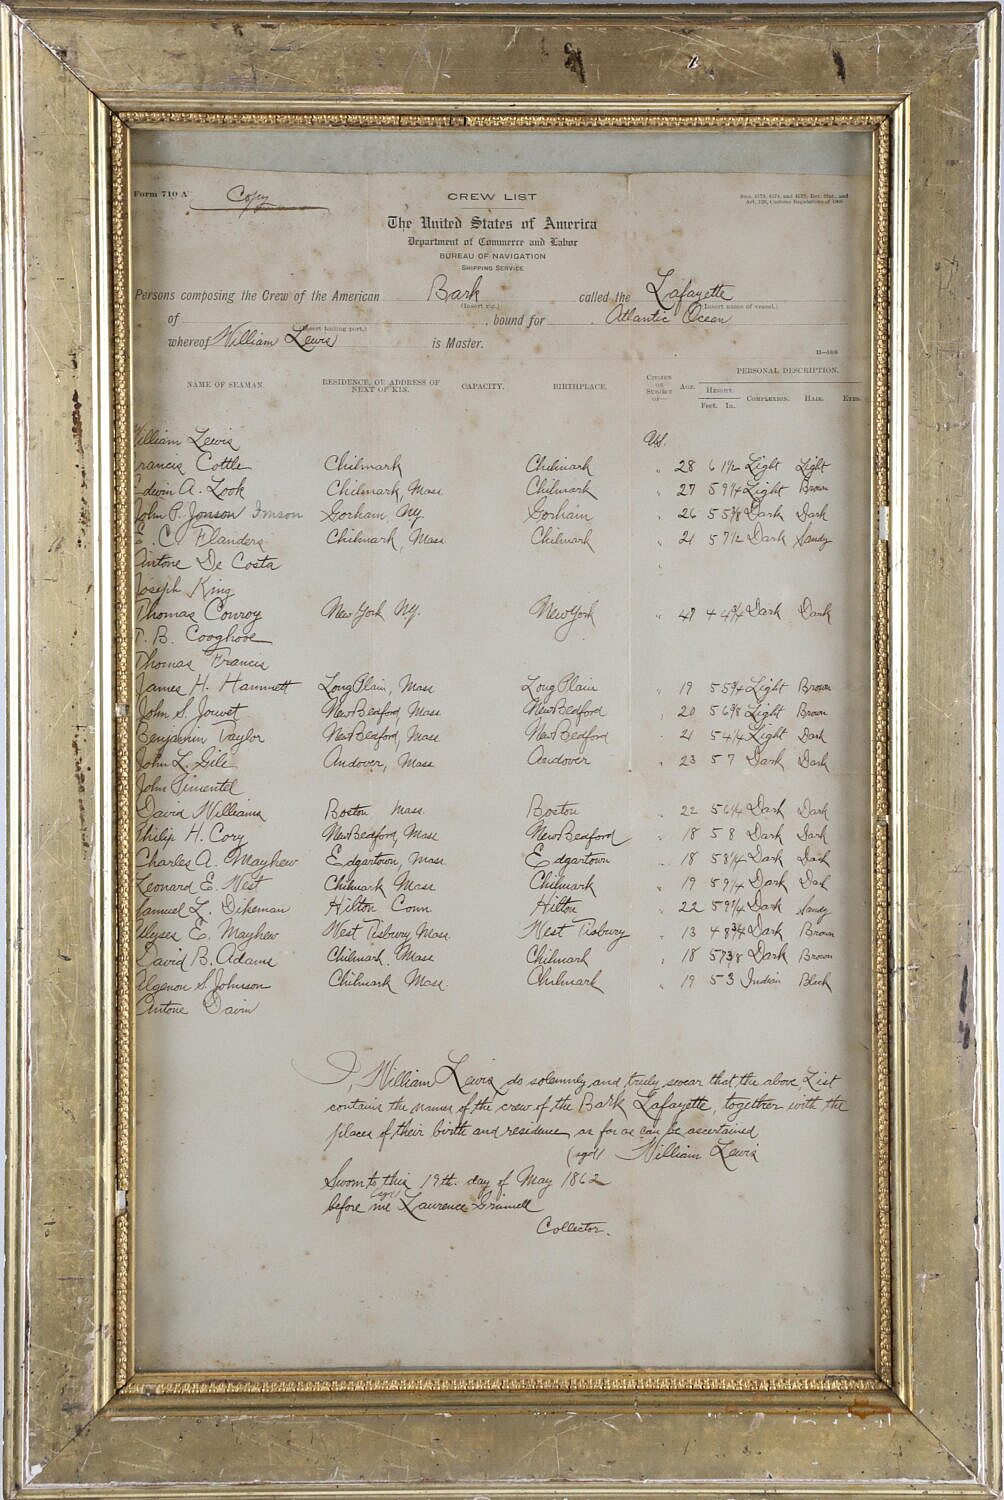 Form 710 A Copy CREW LIST
The United States of America
Department of Commerce and Labor
BUREAU OF NAVIGATION
SHIPPING SERVICE
Persons composing the Crew of the American Bark called the Lafayette
(Insert rig.) (Insert name of vessel.)
of , bound for Atlantic Ocean
(Insert hailing port.)
whereof William Lewis is Master.
PERSONAL DESCRIPTION.
NAME OF SEAMAN. RESIDENCE, OR ADDRESS OF NEXT OF KIN. CAPACITY. BIRTHPLACE. CITIZEN OR SUBJECT OF— AGE. HEIGHT. COMPLEXION. HAIR. EYES.
Feet. In.
William Lewis US.
Francis Cottle Chilmark Chilmark " 28 6 1 1/2 Light Light
Edwin A. Look Chilmark, Mass Chilmark " 27 5 9 1/4 Light Brown
John P. Jonson Imson Gorham, NY. Gorham " 26 5 5 3/8 Dark Dark
E. C. Flanders Chilmark, Mass Chilmark " 21 5 7 1/2 Dark Sandy
Antone De Costa "
Joseph King
Thomas Conroy New York NY. New York " 47 4 4 3/4 Dark Dark
T. B. Cooghooe
Thomas Francis
James H. Hammett Long Plain, Mass Long Plain " 19 5 5 3/4 Light Brown
John S. Jouvet New Bedford, Mass New Bedford " 20 5 6 3/8 Light Brown
Benjamin Taylor New Bedford, Mass New Bedford " 21 5 4 1/4 Light Dark
John L. Gile Andover, Mass Andover " 23 5 7 Dark Dark
John Pimentel
David Williams Boston Mass. Boston " 22 5 6 1/4 Dark Dark
Philip H. Cory New Bedford, Mass New Bedford " 18 5 8 Dark Dark
Charles A. Mayhew Edgartown, Mass Edgartown " 18 5 8 1/4 Dark Dark
Leonard E. West Chilmark Mass Chilmark " 19 5 9 1/4 Dark Dark
Samuel L. Dikeman Hilton Conn Hilton " 22 5 9 1/4 Dark Sandy
Ulyses E. Mayhew West Tisbury Mass West Tisbury " 13 4 8 3/4 Dark Brown
David B. Adams Chilmark Mass Chilmark " 18 5 7 3/8 Dark Brown
Algenon S. Johnson Chilmark Mass. Chilmark " 19 5 3 Indian Black
Antone Davis
I, William Lewis do solemnly and truly swear that the above List
contains the names of the crew of the Bark Lafayette, together with the
places of their birth and residence, as far as can be ascertained
(sgd) William Lewis
Sworn to this 19th. day of May 1862
before me (sgd) Laurence Grinnell
Collector.